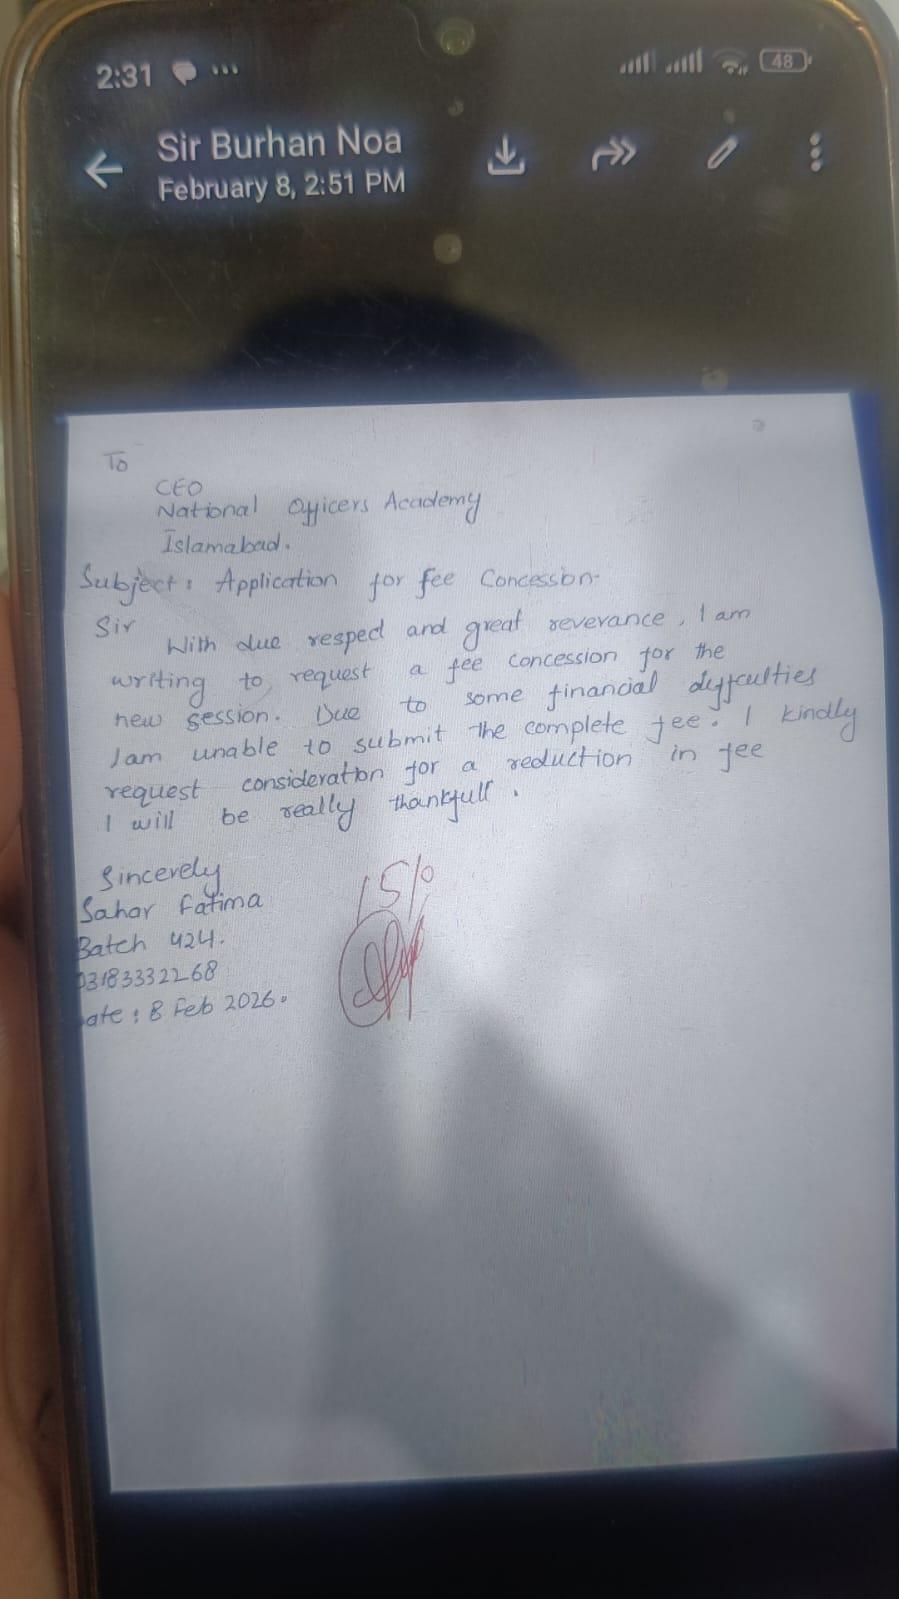 2:31
48
Sir Burhan Noa
February 8, 2:51 PM
To
CEO
National Officers Academy
Islamabad.
Subject: Application for fee Concession
Sir
With due respect and great reverance, I am
writing to request a fee concession for the
new session. Due to some financial dyffculties
I am unable to submit the complete fee. I kindly
request consideration for a reduction in fee
I will be really thankfull.
Sincerely
Sahar Fatima
Batch 424.
03183332268
ate: 8 Feb 2026.
15%